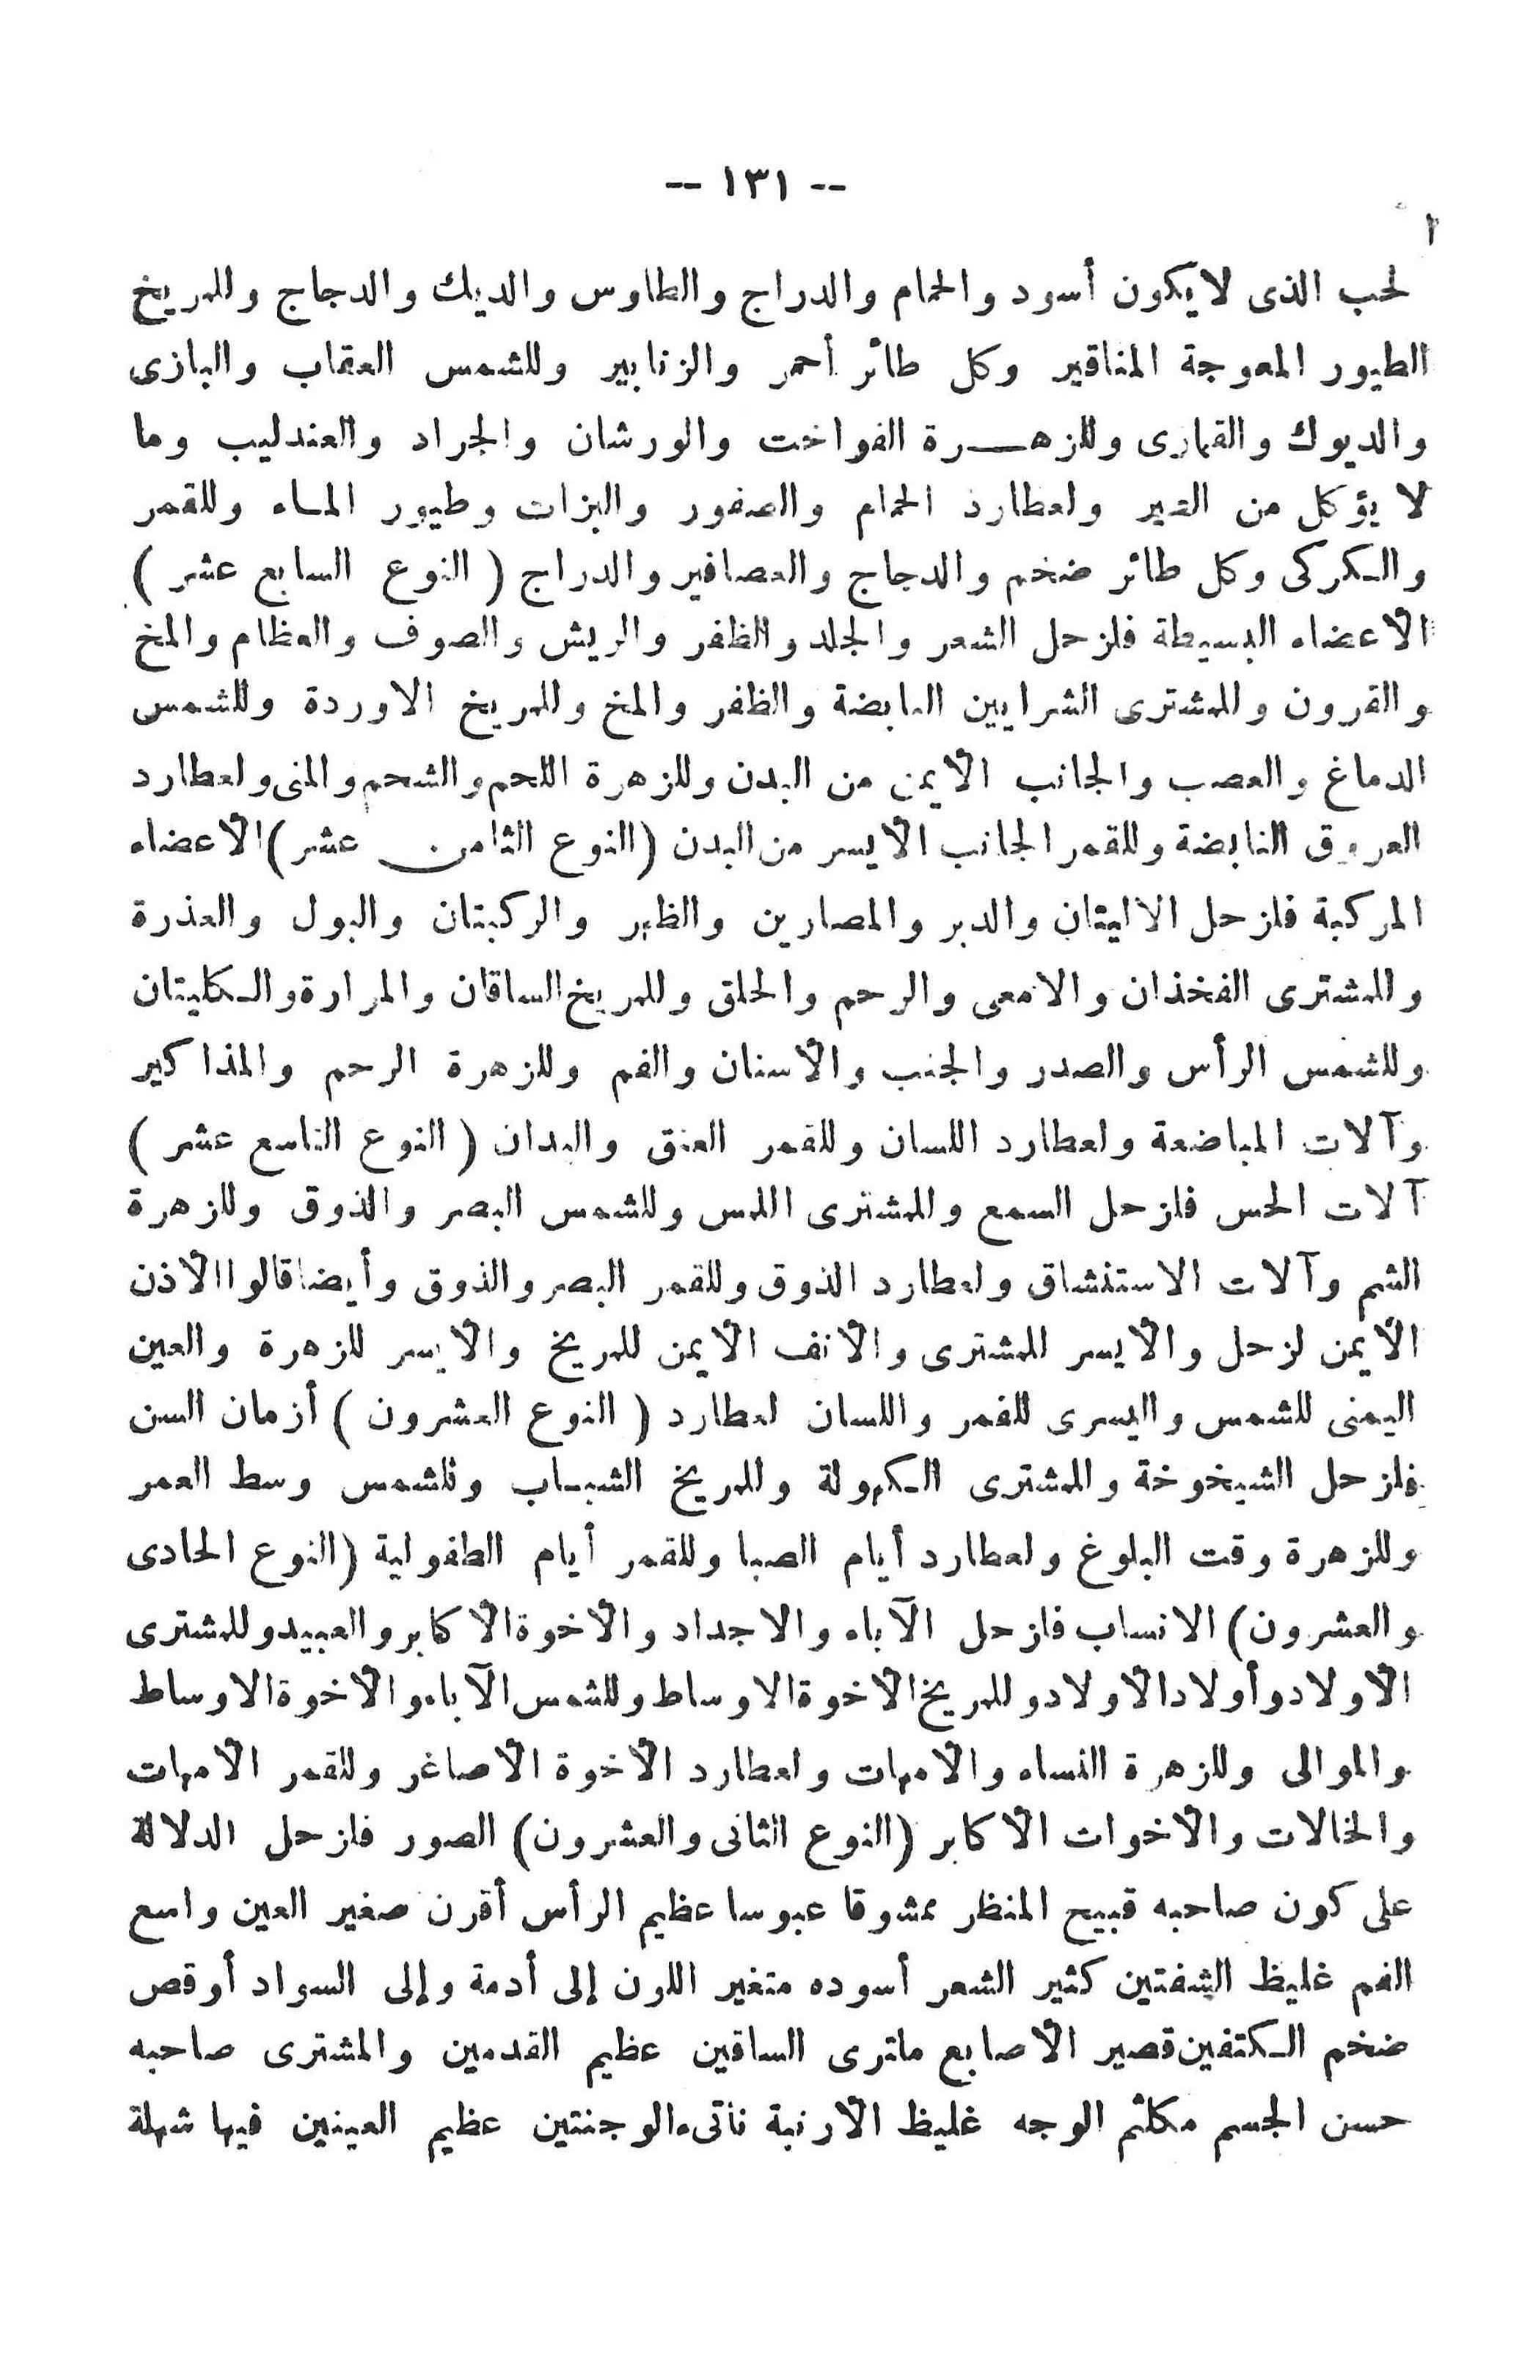 -- ١٣١ --
لحب الذى لايكون أسود والحمام والدراج والطاوس والديك والدجاج وللمريخ
الطيور المعوجة المناقير وكل طائر أحمر والزنابير وللشمس العقاب والبازى
والديوك والقمارى وللزهرة الفواخت والورشان والجراد والعندليب وما
لا يؤكل من الطير ولعطارد الحمام والصفور والبزات وطيور الماء وللقمر
والكركى وكل طائر ضخم والدجاج والعصافير والدراج ( النوع السابع عشر )
الأعضاء البسيطة فلزحل الشعر والجلد والظفر والريش والصوف والعظام والمخ
والقرون وللمشترى الشرايين النابضة والظفر والمخ وللمريخ الاوردة وللشمس
الدماغ والعصب والجانب الأيمن من البدن وللزهرة اللحم والشحم والمنى ولعطارد
العروق النابضة وللقمر الجانب الأيسر من البدن (النوع الثامن عشر) الأعضاء
المركبة فلزحل الاليتان والدبر والمصارين والظهر والركبتان والبول والعذرة
وللمشترى الفخذان والامعى والرحم والحلق وللمريخ الساقان والمرارة والكليتان
وللشمس الرأس والصدر والجنب والأسنان والفم وللزهرة الرحم والمذاكير
وآلات المباضعة ولعطارد اللسان وللقمر العنق واليدان ( النوع التاسع عشر )
آلات الحس فلزحل السمع وللمشترى اللمس وللشمس البصر والذوق وللزهرة
الشم وآلات الاستنشاق ولعطارد الذوق وللقمر البصر والذوق وأيضا قالوا الأذن
الأيمن لزحل والأيسر للمشترى والأنف الأيمن للمريخ والأيسر للزهرة والعين
اليمنى للشمس واليسرى للقمر واللسان لعطارد ( النوع العشرون ) أزمان السن
فلزحل الشيخوخة وللمشترى الكهولة وللمريخ الشباب وللشمس وسط العمر
وللزهرة وقت البلوغ ولعطارد أيام الصبا وللقمر أيام الطفولية (النوع الحادى
والعشرون) الانساب فلزحل الآباء والاجداد والأخوة الأكابر والعبيد وللمشترى
الأولاد وأولاد الأولاد وللمريخ الأخوة الاوساط وللشمس الآباء والأخوة الاوساط
والموالى وللزهرة النساء والأمهات ولعطارد الأخوة الأصاغر وللقمر الأمهات
والخالات والأخوات الأكابر (النوع الثانى والعشرون) الصور فلزحل الدلالة
على كون صاحبه قبيح المنظر ممشوقا عبوسا عظيم الرأس أقرن صغير العين واسع
الفم غليظ الشفتين كثير الشعر أسوده متغير اللون إلى أدمة وإلى السواد أوقص
ضخم الكتفين قصير الأصابع ماترى الساقين عظيم القدمين والمشترى صاحبه
حسن الجسم مكلثم الوجه غليظ الأرنبة ناتىء الوجنتين عظيم العينين فيها شهلة